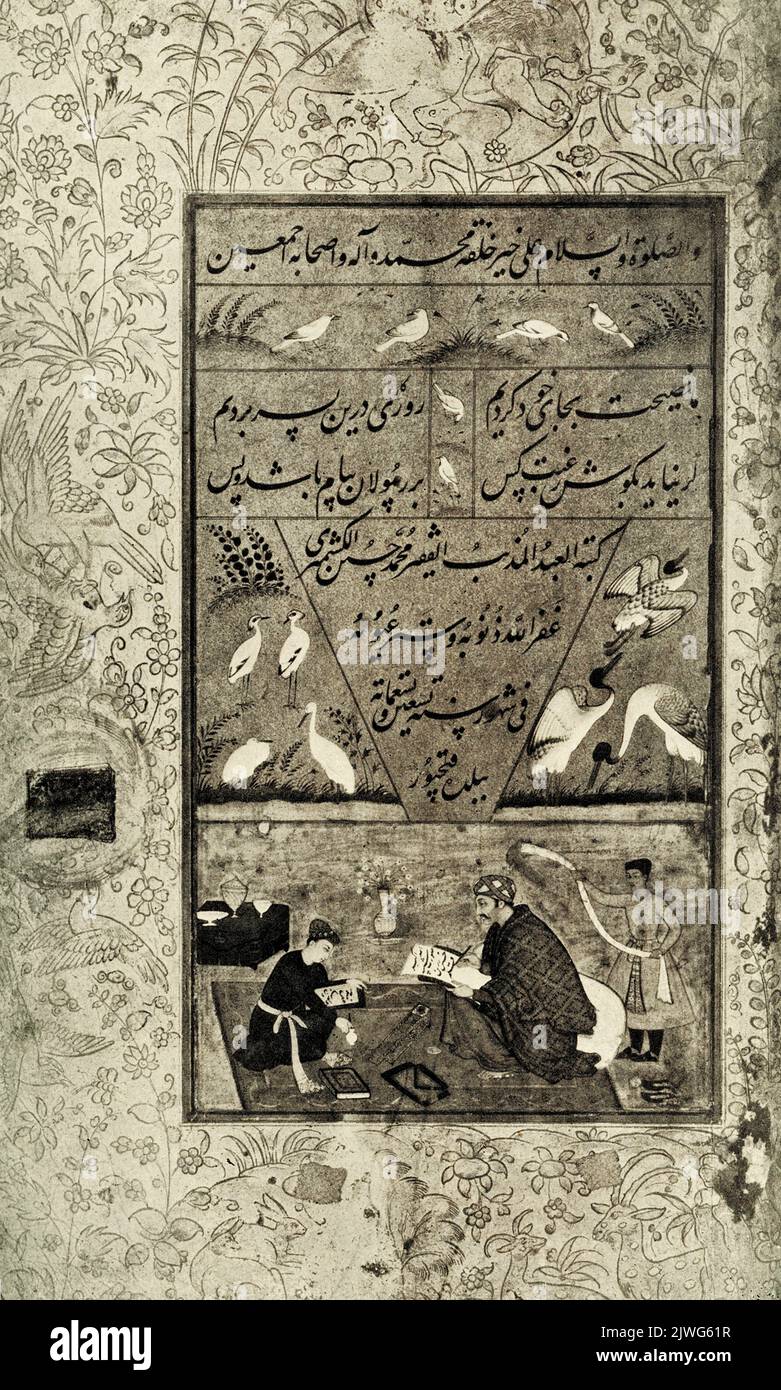 والصلوة والسلام علی خیر خلقه محمد وآله واصحابه اجمعین
ما نصیحت بجای خود کردیم روزگاری درین بسر بردیم
گر نیاید بگوش رغبت کس بر رسولان پیام باشد و بس
کتبه العبد المذنب الفقیر محمد حسین الکشمیری
غفر الله ذنوبه وستر عیوبه
فی شهور سنه تسعین وتسعمائة
ببلدة فتحپور
alamy
alamy
Image ID: 2JWG61R
www.alamy.com